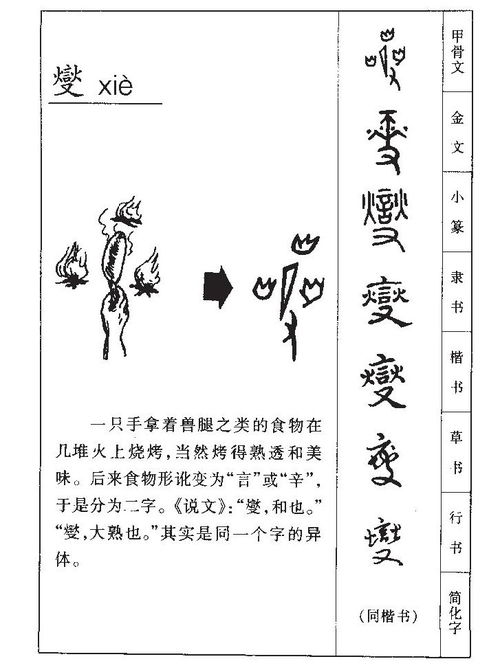 燮 xiè
一只手拿着兽腿之类的食物在
几堆火上烧烤，当然烤得熟透和美
味。后来食物形讹变为“言”或“辛”，
于是分为二字。《说文》：“燮，和也。”
“燮，大熟也。”其实是同一个字的异
体。
甲骨文
金文
小篆
隶书
楷书
草书
行书
(同楷书)
简化字